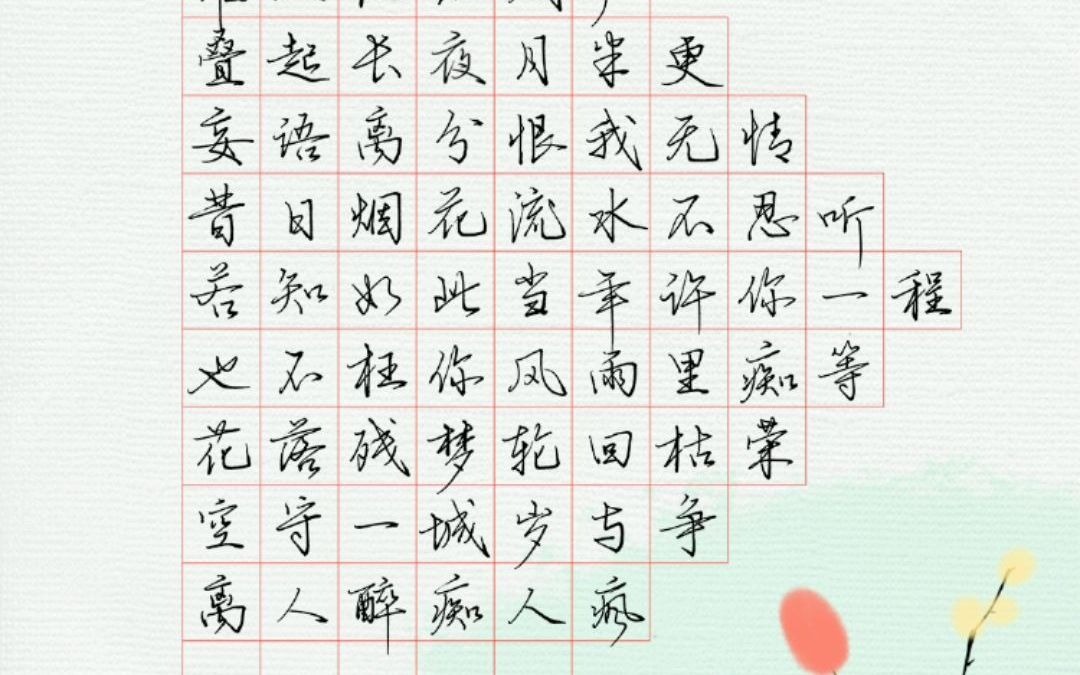 叠起长夜月半更
妄语离兮恨我无情
昔日烟花流水不忍听
若知如此当年许你一程
也不枉你风雨里痴等
花落残梦轮回枯荣
空守一城岁与争
离人醉痴人疯